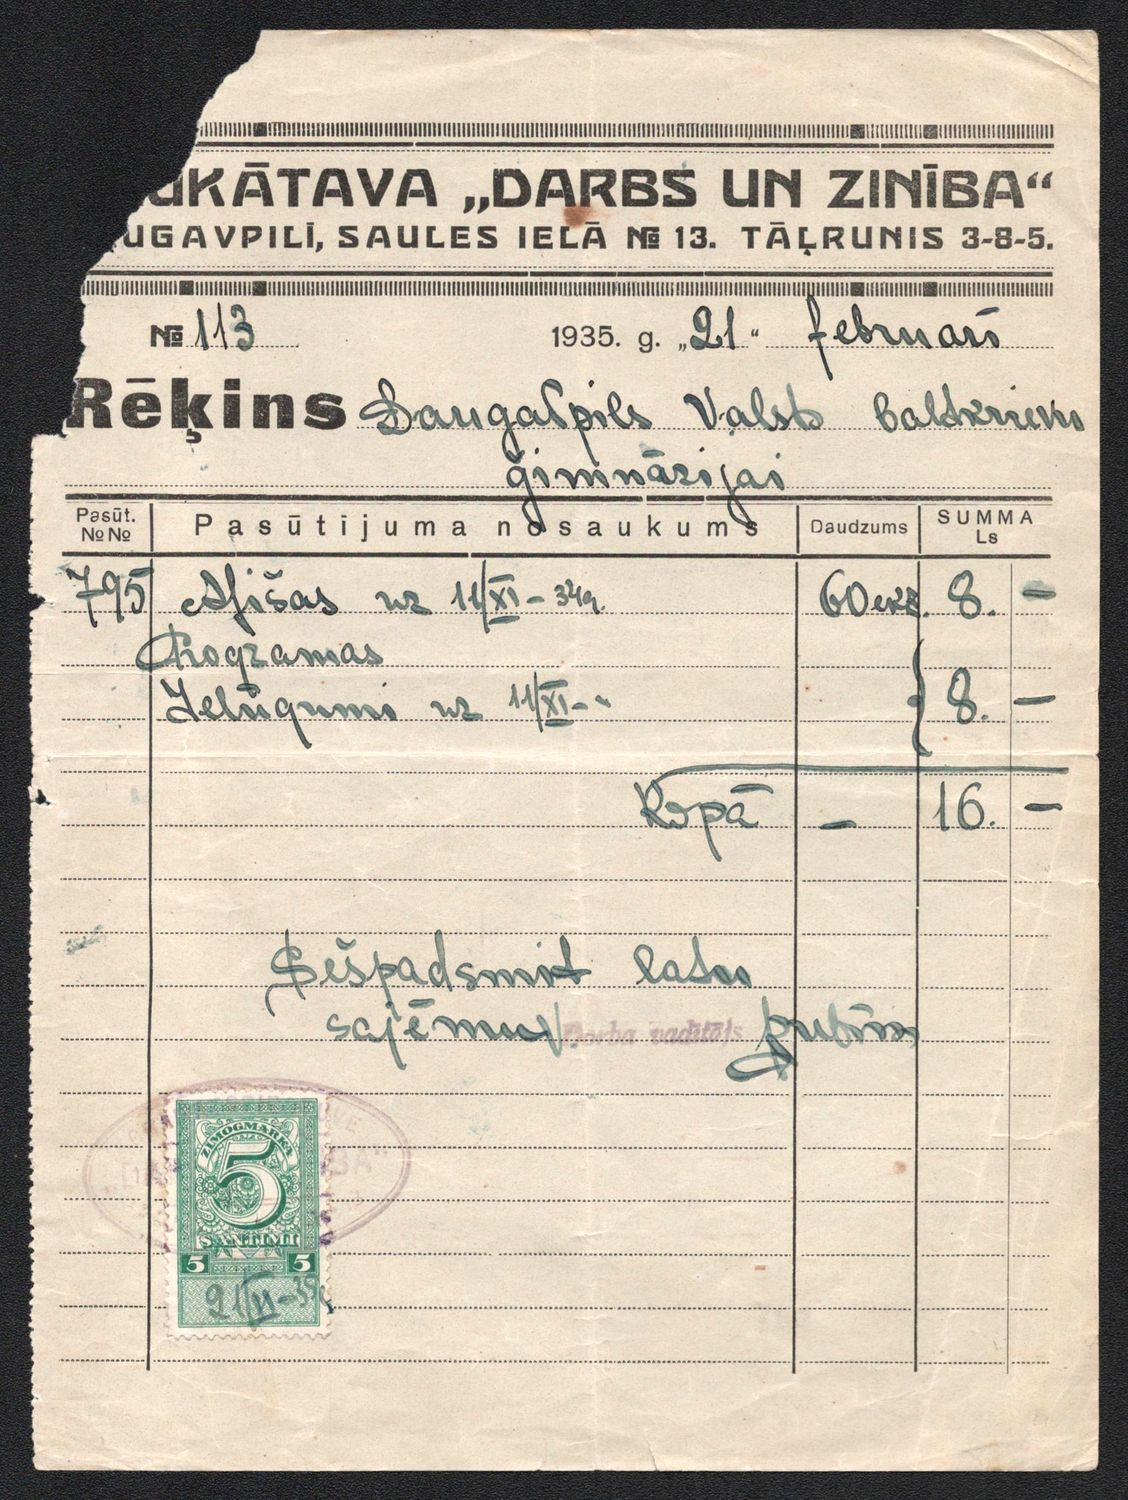 UKĀTAVA „DARBS UN ZINĪBA“
UGAVPILĪ, SAULES IELĀ № 13. TĀĻRUNIS 3-8-5.
№ 113 1935. g. „21“ februarī
Rēķins Daugavpils Valsts baltkrievu
ģimnāzijai
Pasūt. №№ Pasūtījuma nosaukums Daudzums SUMMA Ls
795 Afišas uz 11/XI – 34g. 60 eks. 8. –
Programas
Ielūgumi uz 11/XI – " 8. –
Kopā – 16. –
Sešpadsmit latu
saņēmu Darba vadītājs
ZĪMOGMARKA
5
SANTIMI
5 5
21/II – 35